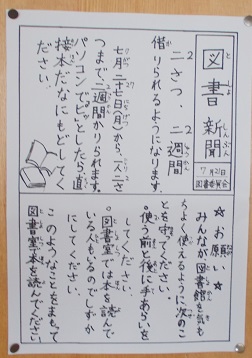 図書新聞
としょしんぶん
7月21日
図書委員会
二さつ、二週間
借りられるようになります。
七月二十七日(月)から、一人二さ
つまで、二週間かりられます。
パソコンでピッとしたら直
接本だなにもどしてく
ださい。
☆お願い☆
みんなが図書館を気も
ちよく使えるように次のこ
とを守ってください。
○使う前と後に手あらいを
してください。
○図書室では本を読んで
いる人もいるのでしずか
にしてください。
このようなことをまもって
図書室で本を読んでください